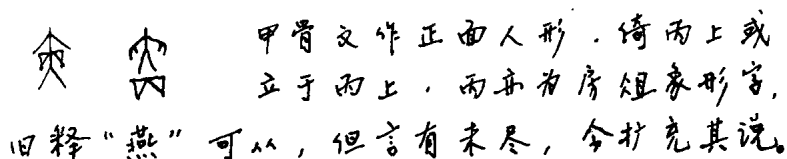 甲骨文作正面人形,倚丙上或
立于丙上,丙亦为房俎象形字,
旧释“燕”可从,但言有未尽,今扩充其说。